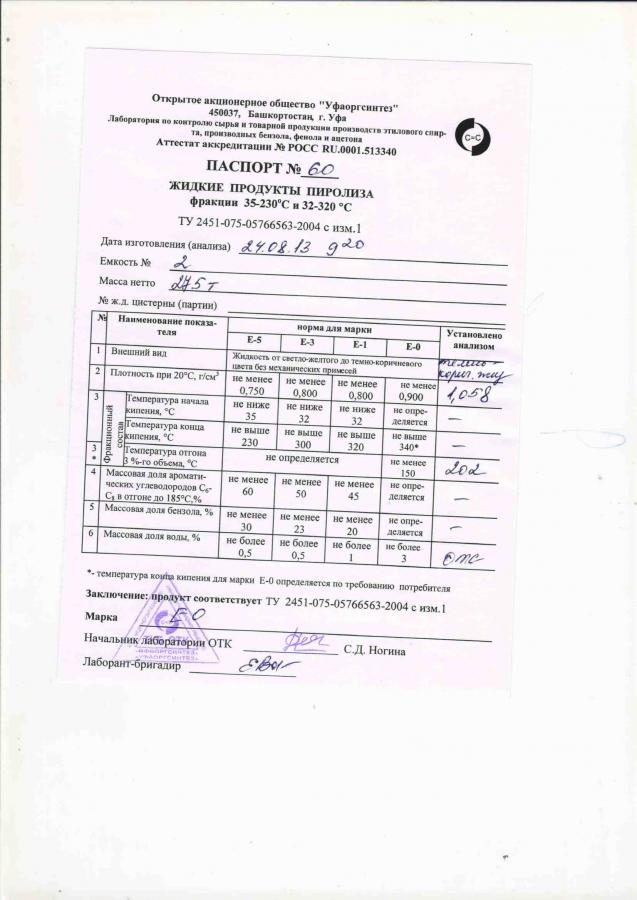 Открытое акционерное общество "Уфаоргсинтез"
450037, Башкортостан, г. Уфа
Лаборатория по контролю сырья и товарной продукции производств этилового спир-
та, производных бензола, фенола и ацетона
Аттестат аккредитации № РОСС RU.0001.513340
C=C
ПАСПОРТ № 60
ЖИДКИЕ ПРОДУКТЫ ПИРОЛИЗА
фракции 35-230°С и 32-320 °С
ТУ 2451-075-05766563-2004 с изм.1
Дата изготовления (анализа) 24.08.13 9 20
Емкость № 2
Масса нетто 275 т
№ ж.д. цистерны (партии)
№ Наименование показа-
теля
норма для марки
Е-5 Е-3 Е-1 Е-0
Установлено
анализом
1 Внешний вид Жидкость от светло-желтого до темно-коричневого
цвета без механических примесей
темно-
корич. жид
2 Плотность при 20°С, г/см³ не менее 0,750 не менее 0,800 не менее 0,800 не менее 0,900 1,058
3 Фракционный состав
Температура начала
кипения, °С не ниже 35 не ниже 32 не ниже 32 не опре-
деляется –
Температура конца
кипения, °С не выше 230 не выше 300 не выше 320 не выше 340* –
3
*
Температура отгона
3 %-го объема, °С не определяется не менее 150 202
4 Массовая доля аромати-
ческих углеводородов С6-
С8 в отгоне до 185°С,% не менее 60 не менее 50 не менее 45 не опре-
деляется –
5 Массовая доля бензола, % не менее 30 не менее 23 не менее 20 не опре-
деляется –
6 Массовая доля воды, % не более 0,5 не более 0,5 не более 1 не более 3 отс
*- температура конца кипения для марки Е-0 определяется по требованию потребителя
Заключение: продукт соответствует ТУ 2451-075-05766563-2004 с изм.1
Марка Е О
Начальник лаборатории ОТК С.Д. Ногина
Лаборант-бригадир
«УФАОРГСИНТЕЗ»